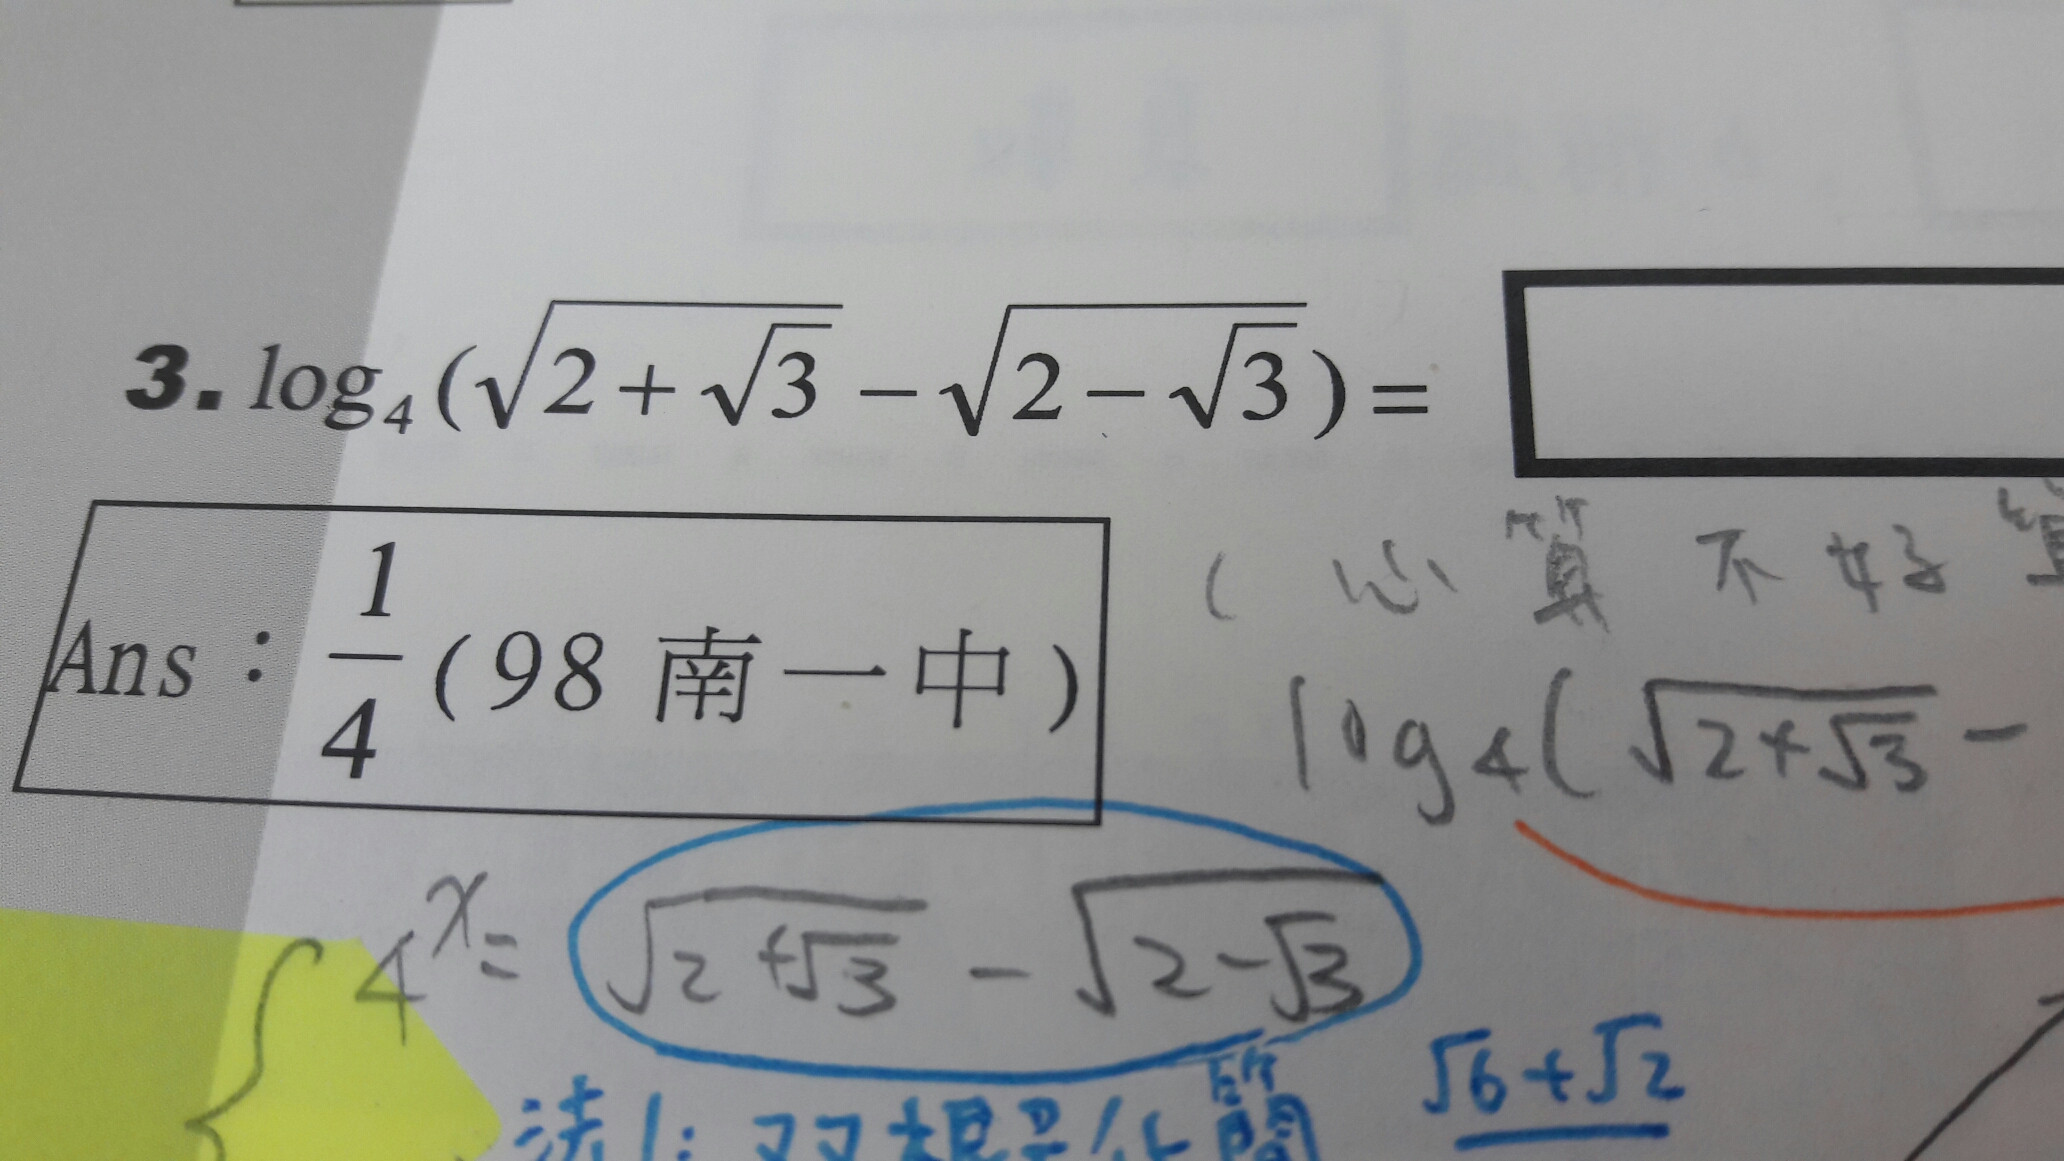 3. log₄(√(2+√3) − √(2−√3)) =
Ans：1/4 (98 南一中)
(心算不好算
log₄(√(2+√3) −
4ˣ = √(2+√3) − √(2−√3)
√6+√2
法1: 双根号化簡